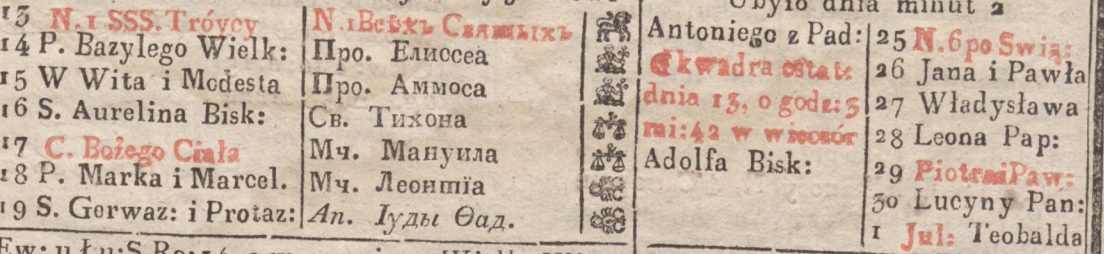 Ubyło dnia minut 2
13 N. 1 SSS. Tróycy N. 1 Всѣхъ Святыхъ Antoniego z Pad: 25 N. 6 po Swią:
14 P. Bazylego Wielk: Про. Елиссеа kwadra ostat: 26 Jana i Pawła
15 W Wita i Modesta Про. Аммоса dnia 13, o godz: 3 27 Władysława
16 S. Aurelina Bisk: Св. Тихона mi: 42 w wieczór 28 Leona Pap:
17 C. Bożego Ciała Мч. Мануила Adolfa Bisk: 29 Piotra i Paw:
18 P. Marka i Marcel. Мч. Леонтїа 30 Lucyny Pan:
19 S. Gerwaz: i Protaz: Ап. Іуды Ѳад. 1 Jul: Teobalda